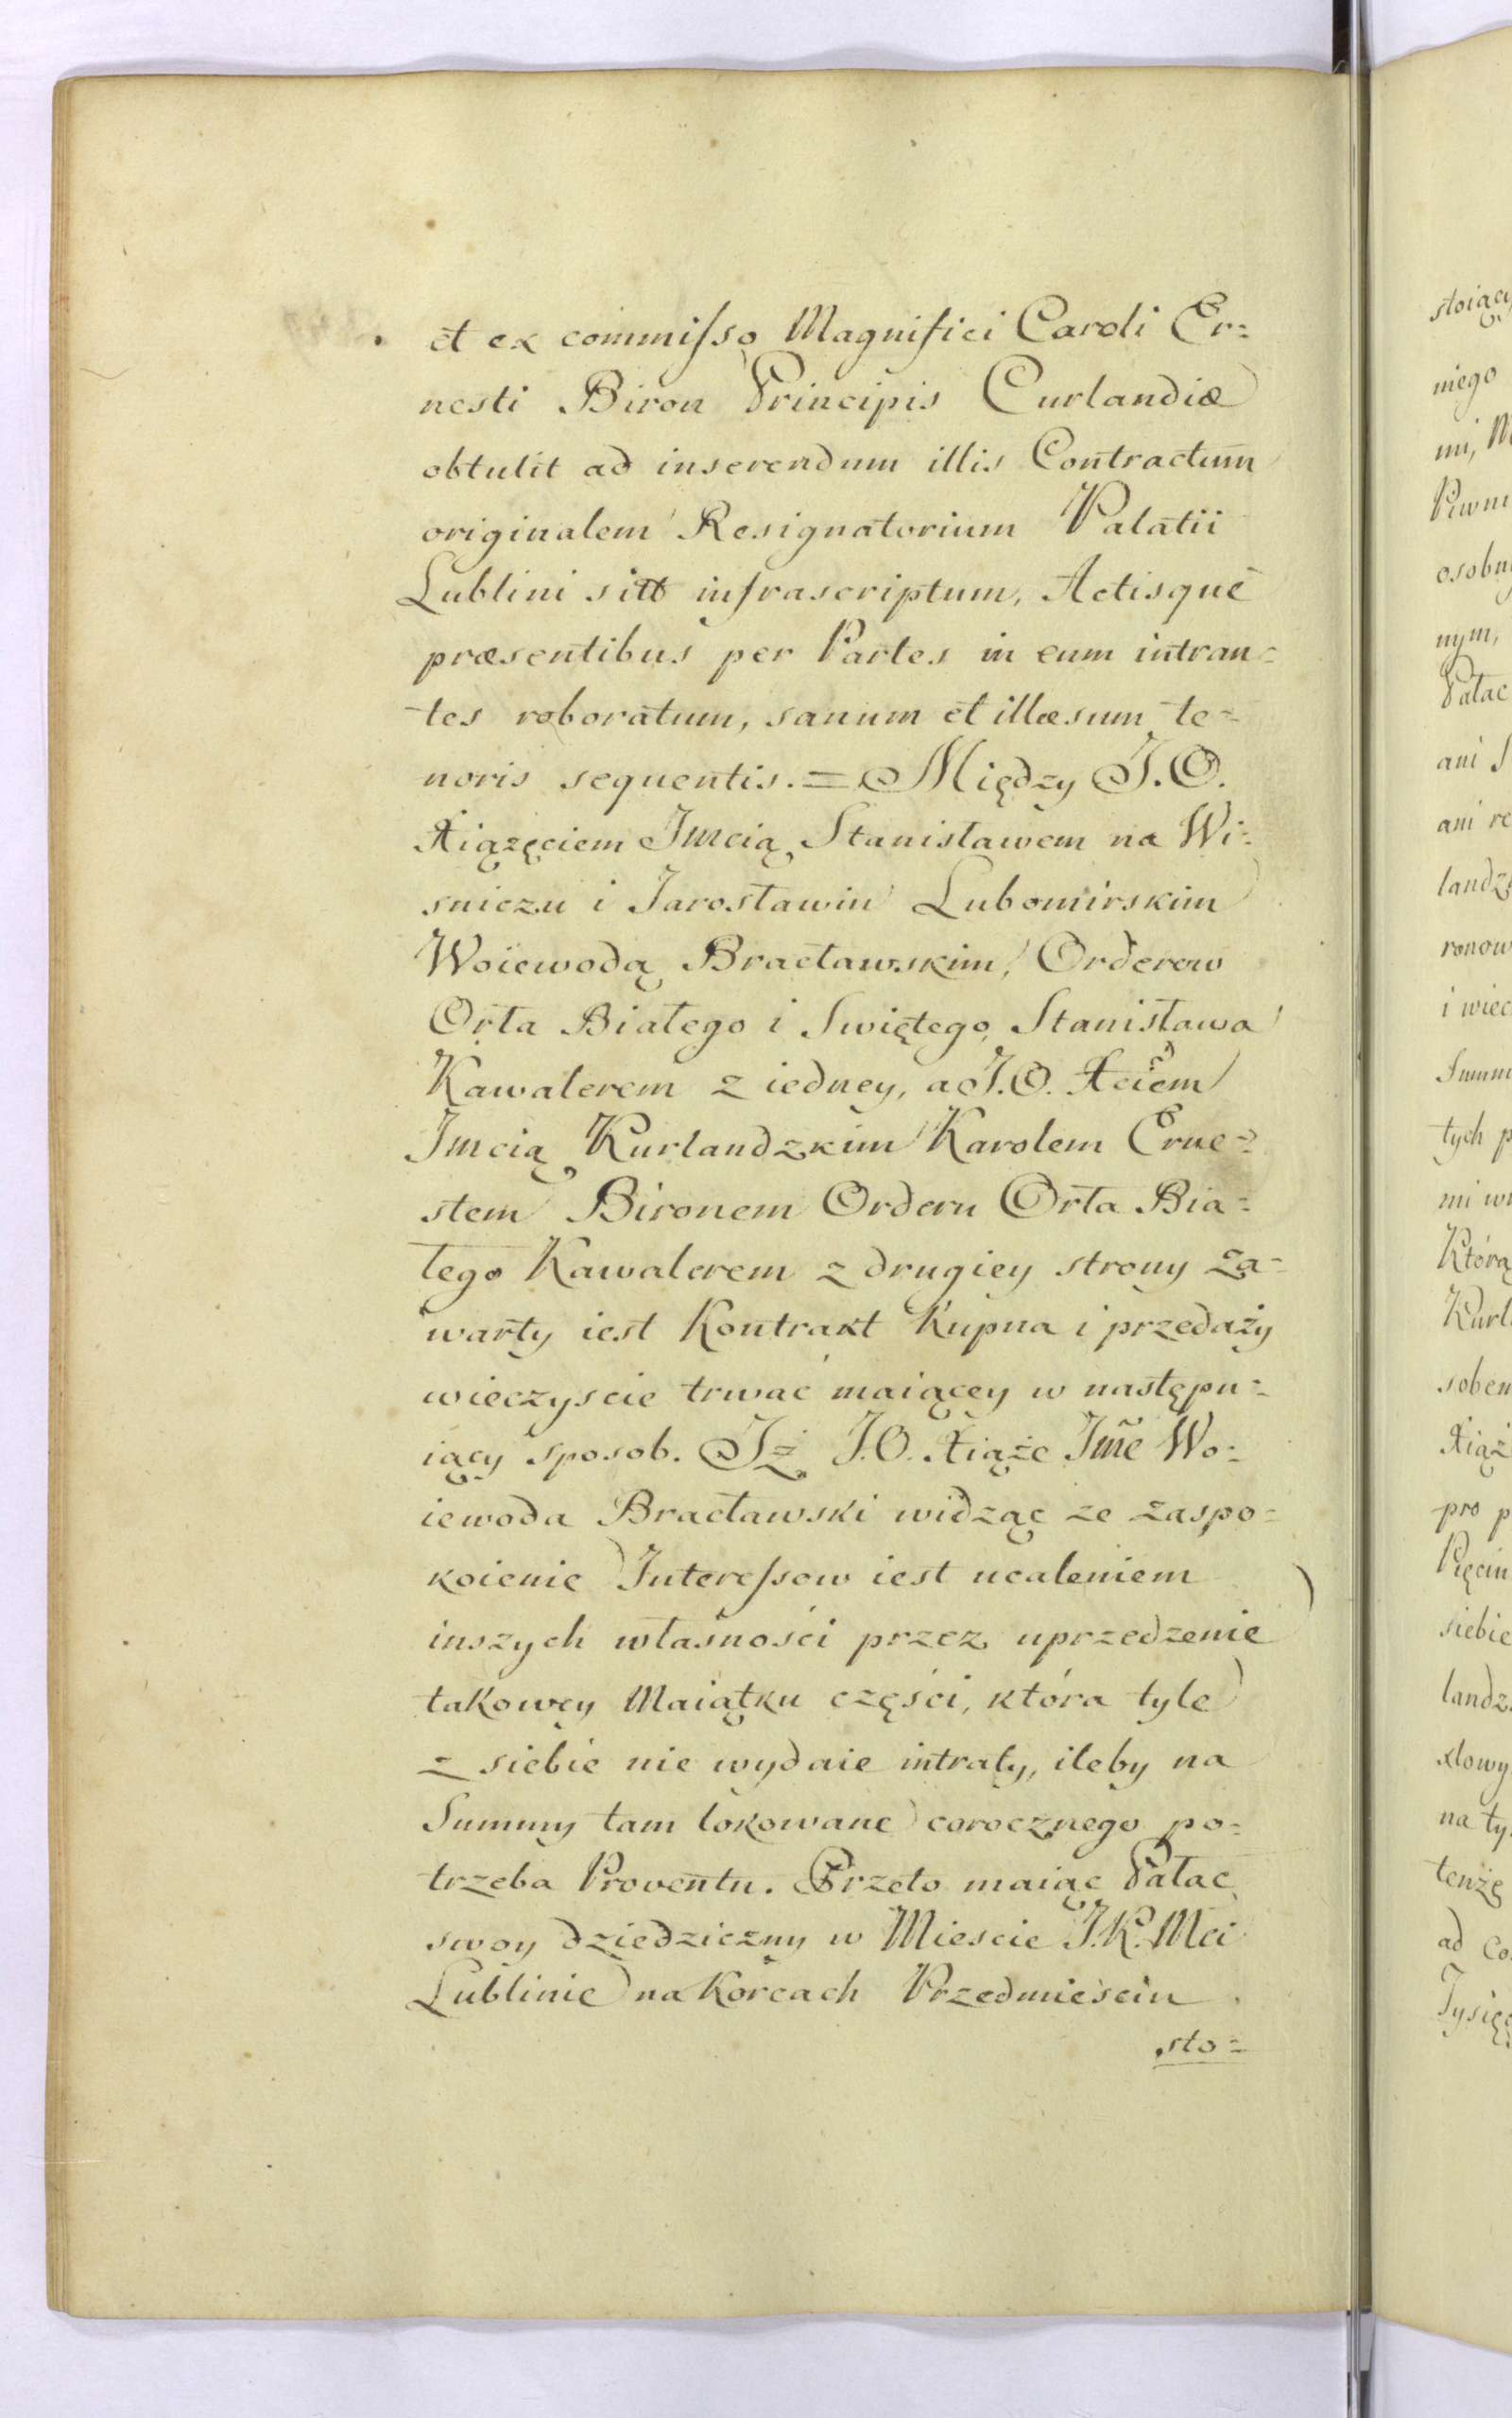 et ex commisso Magnifici Caroli Er=
nesti Biron Principis Curlandiæ
obtulit ad inserendum illis Contractum
originalem Resignatorium Palatii
Lublini siti infrascriptum, Actisque
præsentibus per Partes in eum intran=
tes roboratum, sanum et illæsum te=
noris sequentis. = Między J.O.
Xiążęciem Jmcią Stanisławem na Wi=
sniczu i Jarosławiu Lubomirskim
Woiewodą Bracławskim, Orderow
Orła Białego i Swiętego Stanisława
Kawalerem z iedney, a J.O. Xciem
Jmcią Kurlandzkim Karolem Erne=
stem Bironem Orderu Orła Bia=
łego Kawalerem z drugiey strony za=
warty iest Kontrakt Kupna i przedaży
wieczyscie trwać maiącey w następu=
iący sposob. Jż J.O. Xiąże Jmć Wo=
iewoda Bracławski widząc ze zaspo=
koienie Interessow iest ucaleniem
inszych własności przez uprzedzenie
takowey Maiątku części, która tyle
z siebie nie wydaie intraty, ileby na
Summy tam lokowane corocznego po=
trzeba Proventu. Przeto maiąc Pałac
swoy dziedziczny w Miescie J.K.Mci
Lublinie na Korcach Przedmieściu
sto=
stoiący
niego
mi,
osobny
nym,
Pałac
ani
ani
i
tych
Którą
pro
siebie
na
tenże
ad